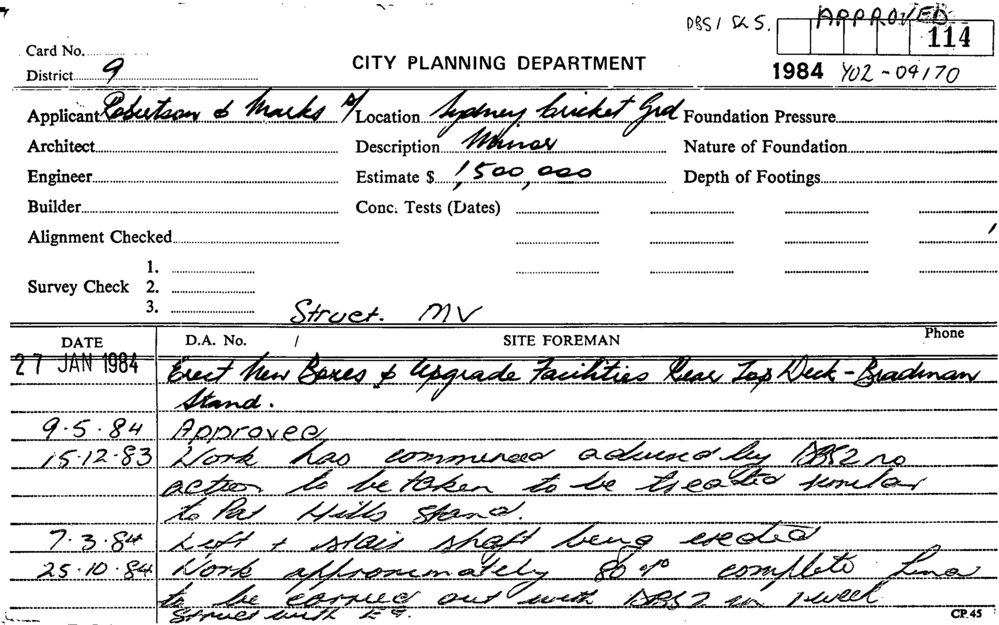 DBS1 S&S. APPROVED
114
Card No.
District 9
CITY PLANNING DEPARTMENT
1984 Y02-04170
Applicant Robertson & Marks
Location Sydney Cricket Grd
Foundation Pressure
Architect
Description Minor
Nature of Foundation
Engineer
Estimate $ 1,500,000
Depth of Footings
Builder
Conc. Tests (Dates)
Alignment Checked
1.
Survey Check 2.
3.
Struct. MV
DATE D.A. No. / SITE FOREMAN Phone
27 JAN 1984 Erect New Boxes & Upgrade Facilities Rear Top Deck - Bradman
Stand.
9.5.84 Approved
15.12.83 Work has commenced advised by DBS2 no
action to be taken to be treated similar
to Pat Hills Stand.
7.3.84 Left + stair shaft being erected
25.10.84 Work approximately 80% complete
to be carried out with DBS2 in 1 week
Struct with
CP.45